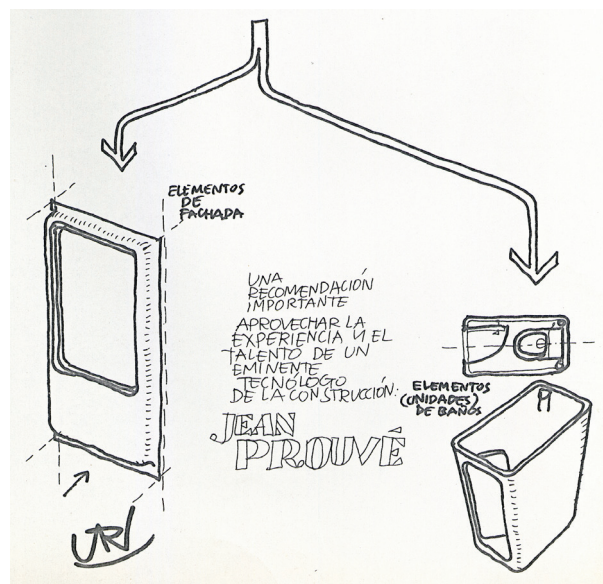 ELEMENTOS
DE
FACHADA
UNA
RECOMENDACIÓN
IMPORTANTE
APROVECHAR LA
EXPERIENCIA Y EL
TALENTO DE UN
EMINENTE
TECNÓLOGO
DE LA CONSTRUCCIÓN.
JEAN
PROUVÉ
ELEMENTOS
(UNIDADES)
DE BAÑOS
URI